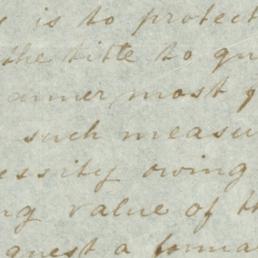 is to protect
the title to qu
anner most
such measu
essity owing
ng value of th
quest a forma